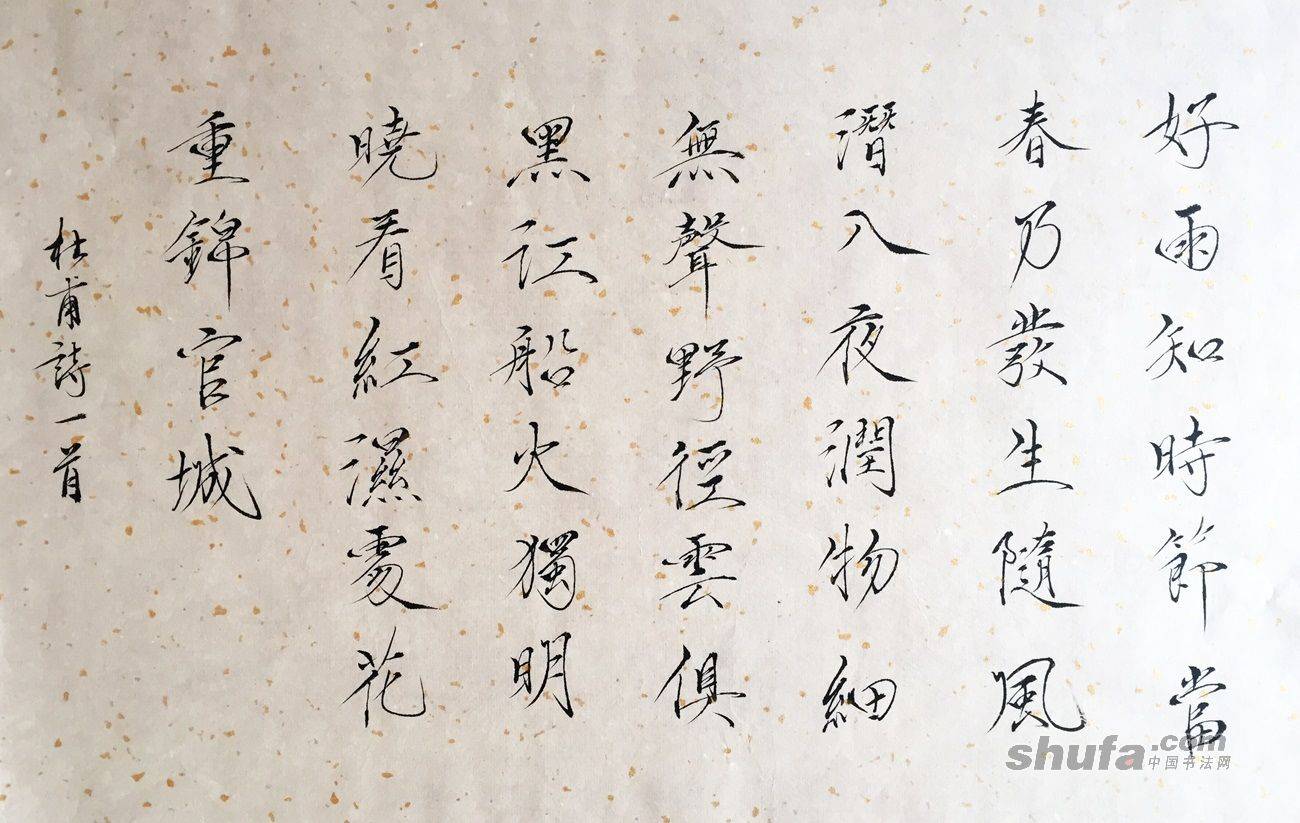 好雨知時節當
春乃發生隨風
潛入夜潤物細
無聲野徑雲俱
黑江船火獨明
曉看紅濕處花
重錦官城
杜甫詩一首
shufa.com
中国书法网